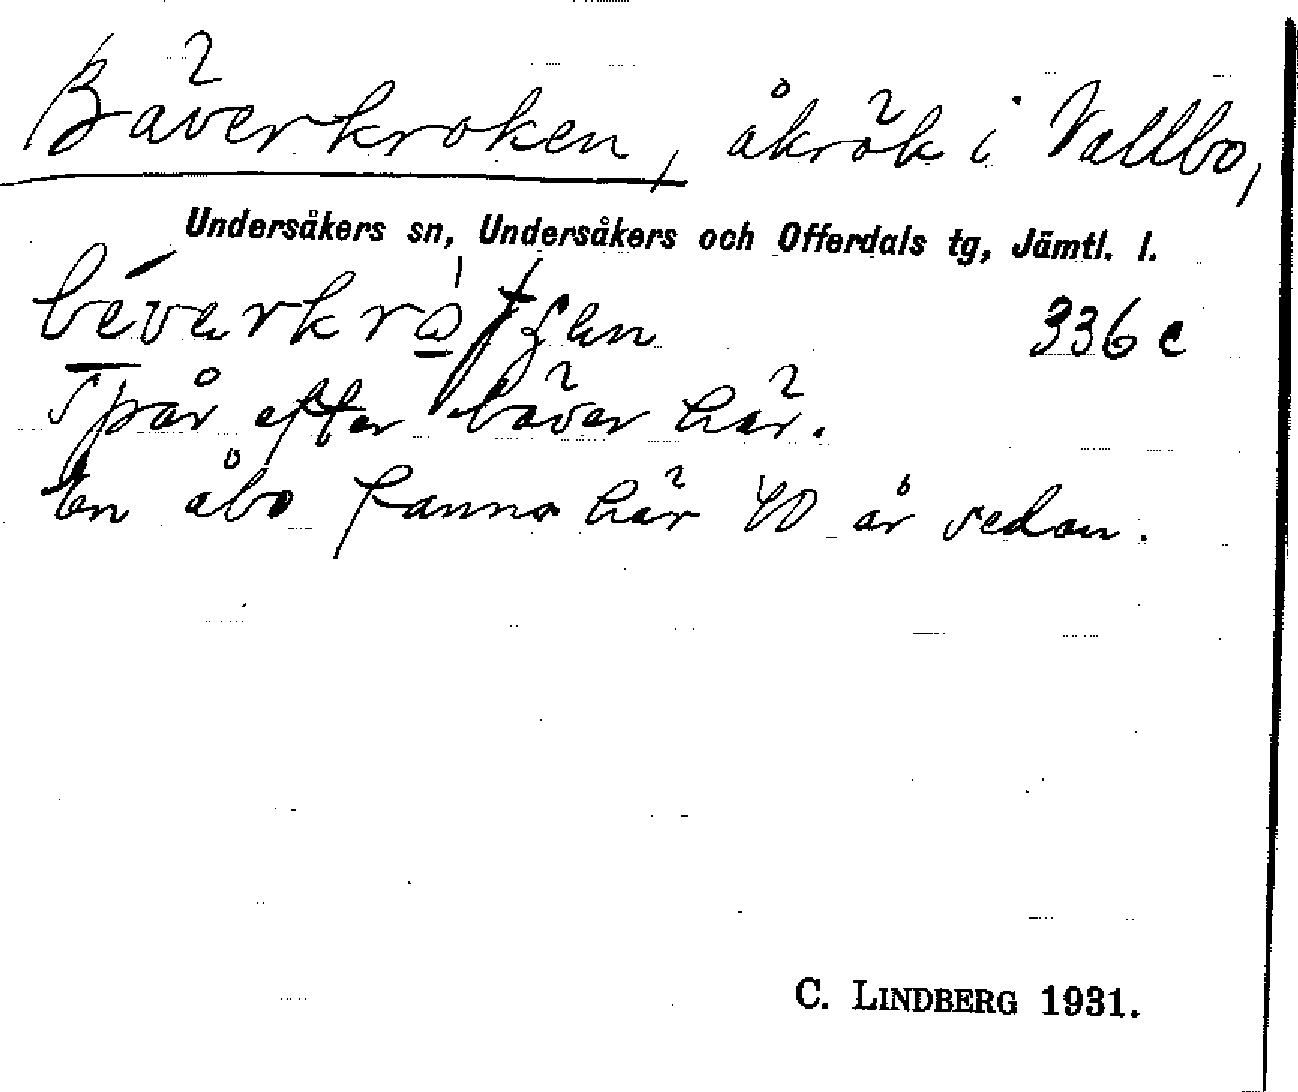 Bäverkroken, åkrök i Vallbo,
Undersåkers sn, Undersåkers och Offerdals tg, Jämtl. l.
336 c
Spår efter bäver här.
En åbo fanns här 40 år sedan.
C. LINDBERG 1931.